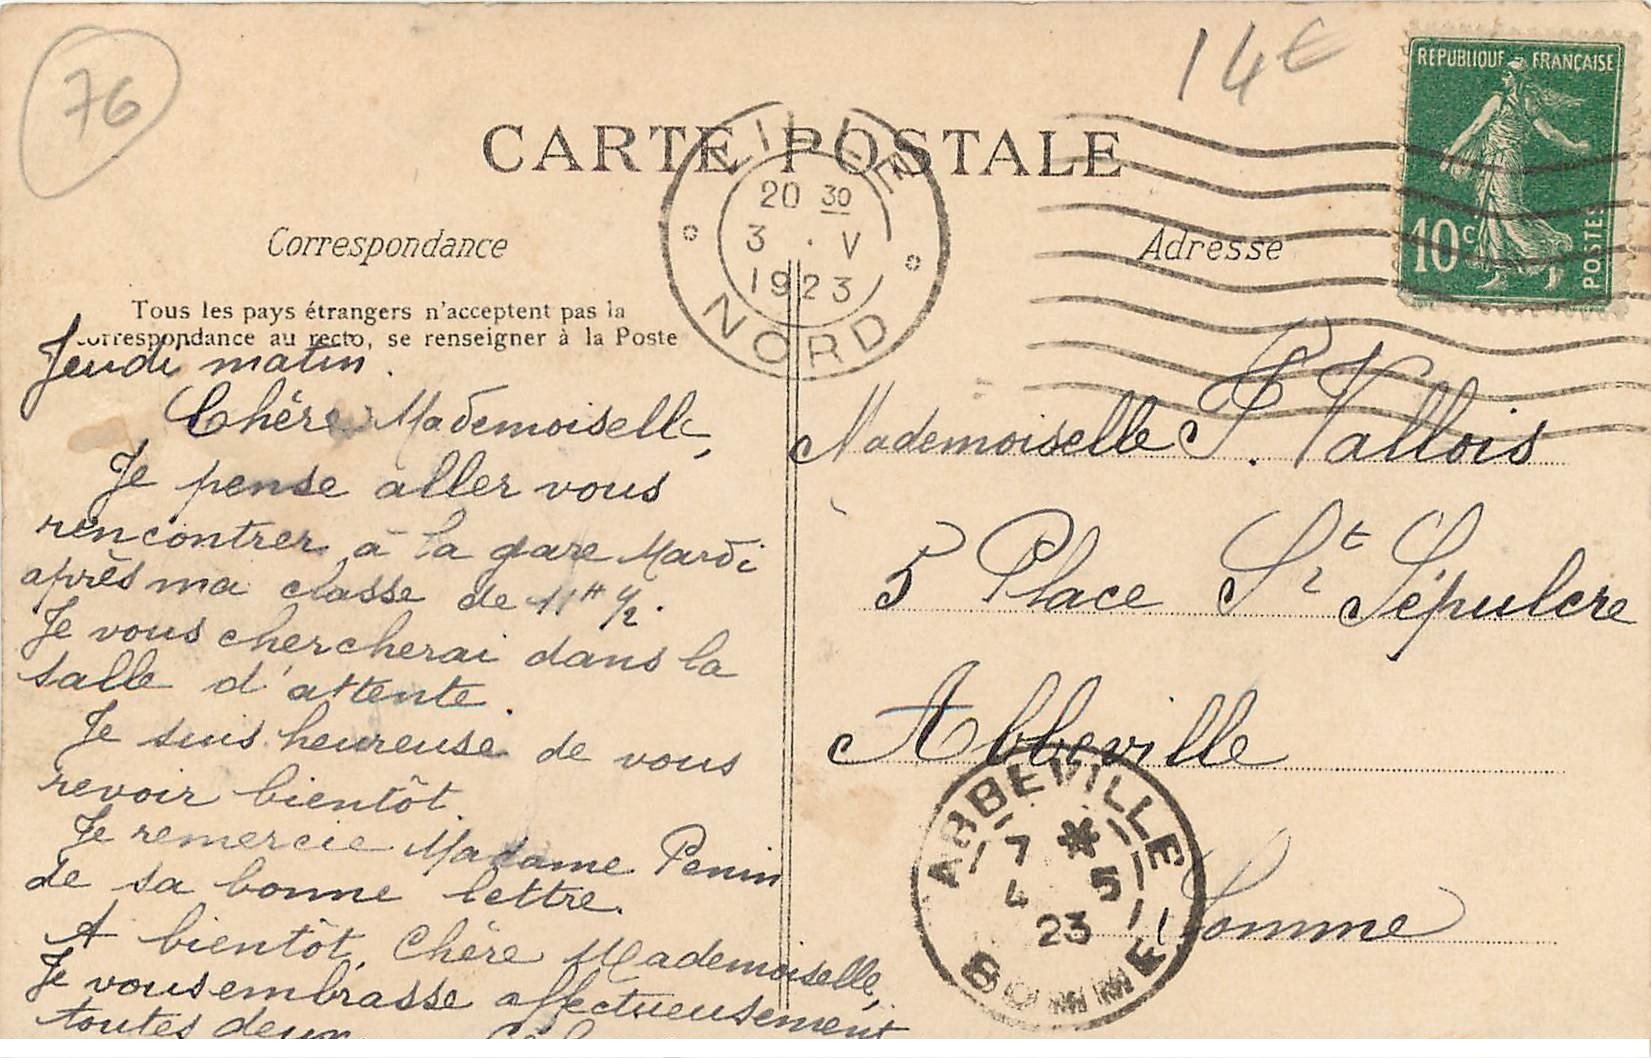 76
14€
REPUBLIQUE FRANÇAISE
10c
POSTES
CARTE POSTALE
LILLE
20 30
3 . V
1923
NORD
Correspondance
Adresse
Tous les pays étrangers n'acceptent pas la
correspondance au recto, se renseigner à la Poste
Jeudi matin.
Chère Mademoiselle,
Je pense aller vous
rencontrer à la gare Mardi
après ma classe de 11H 1/2.
Je vous chercherai dans la
salle d'attente.
Je suis heureuse de vous
revoir bientôt.
Je remercie Madame Penin
de sa bonne lettre.
A bientôt, Chère Mademoiselle,
Je vous embrasse affectueusement
toutes deux.
Mademoiselle F. Vallois
5 Place St Sépulcre
Abbeville
Somme
ABBEVILLE
7 *
4 5
23
SOMME